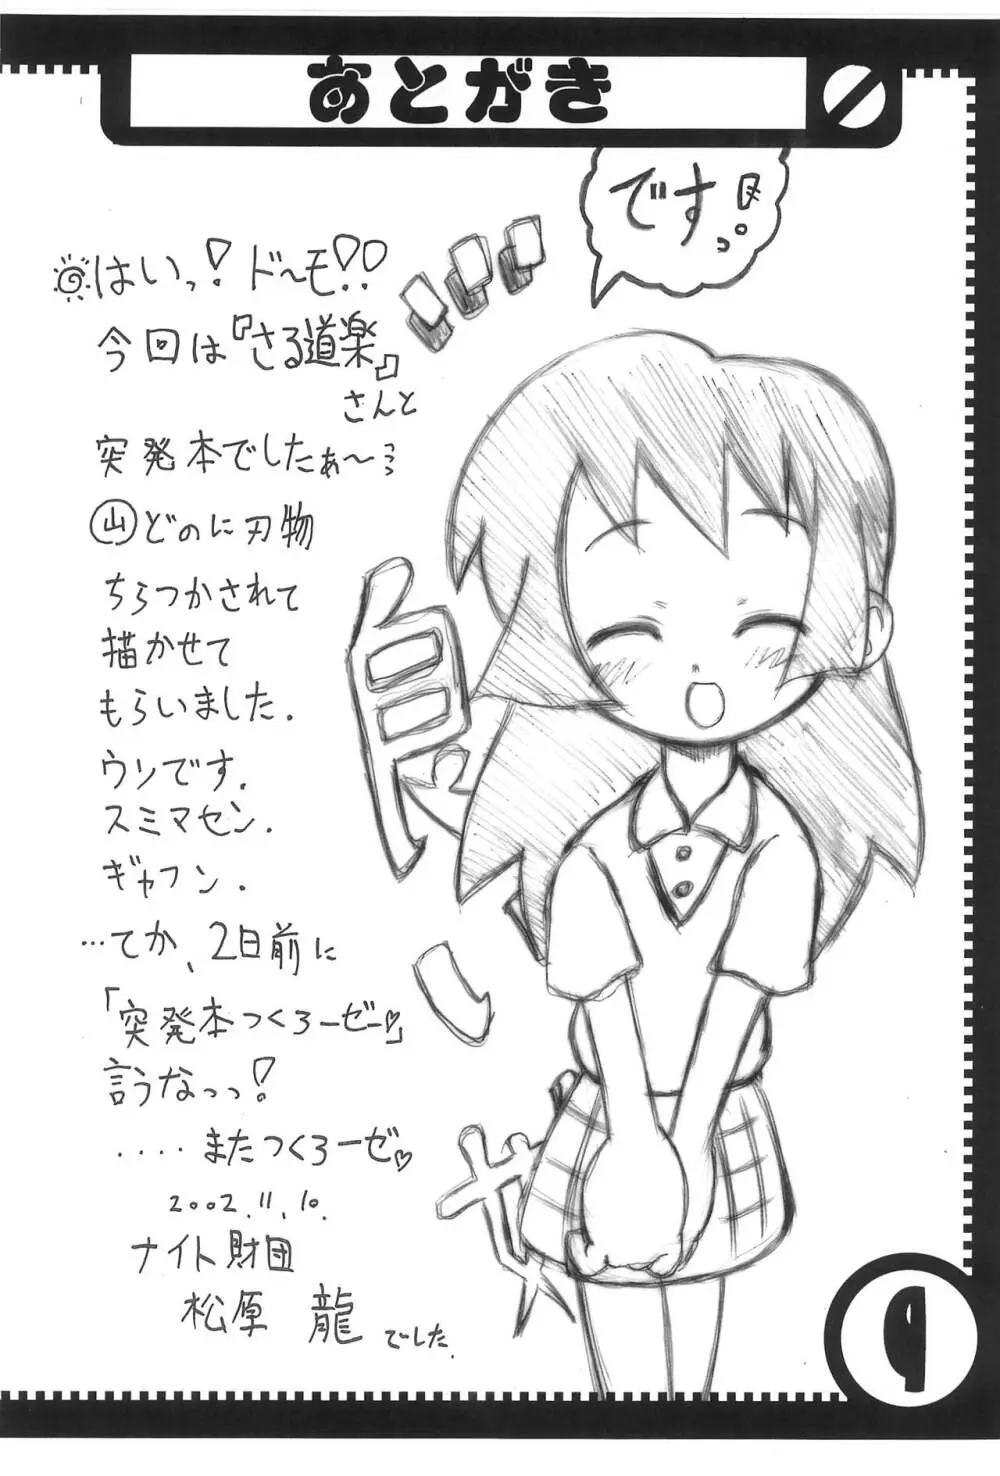 あとがき
です!っ。
はいっ!ド~モ!!
今回は『さる道楽』
さんと
突発本でしたぁ~
㊤どのに刃物
ちらつかされて
描かせて
もらいました.
ウソです.
スミマセン.
ギャフン.
…てか、2日前に
「突発本つくろーぜー♡」
言うなっっ!
‥‥またつくろーぜ♡
2002.11.10.
ナイト財団
松原 龍 でした.
9